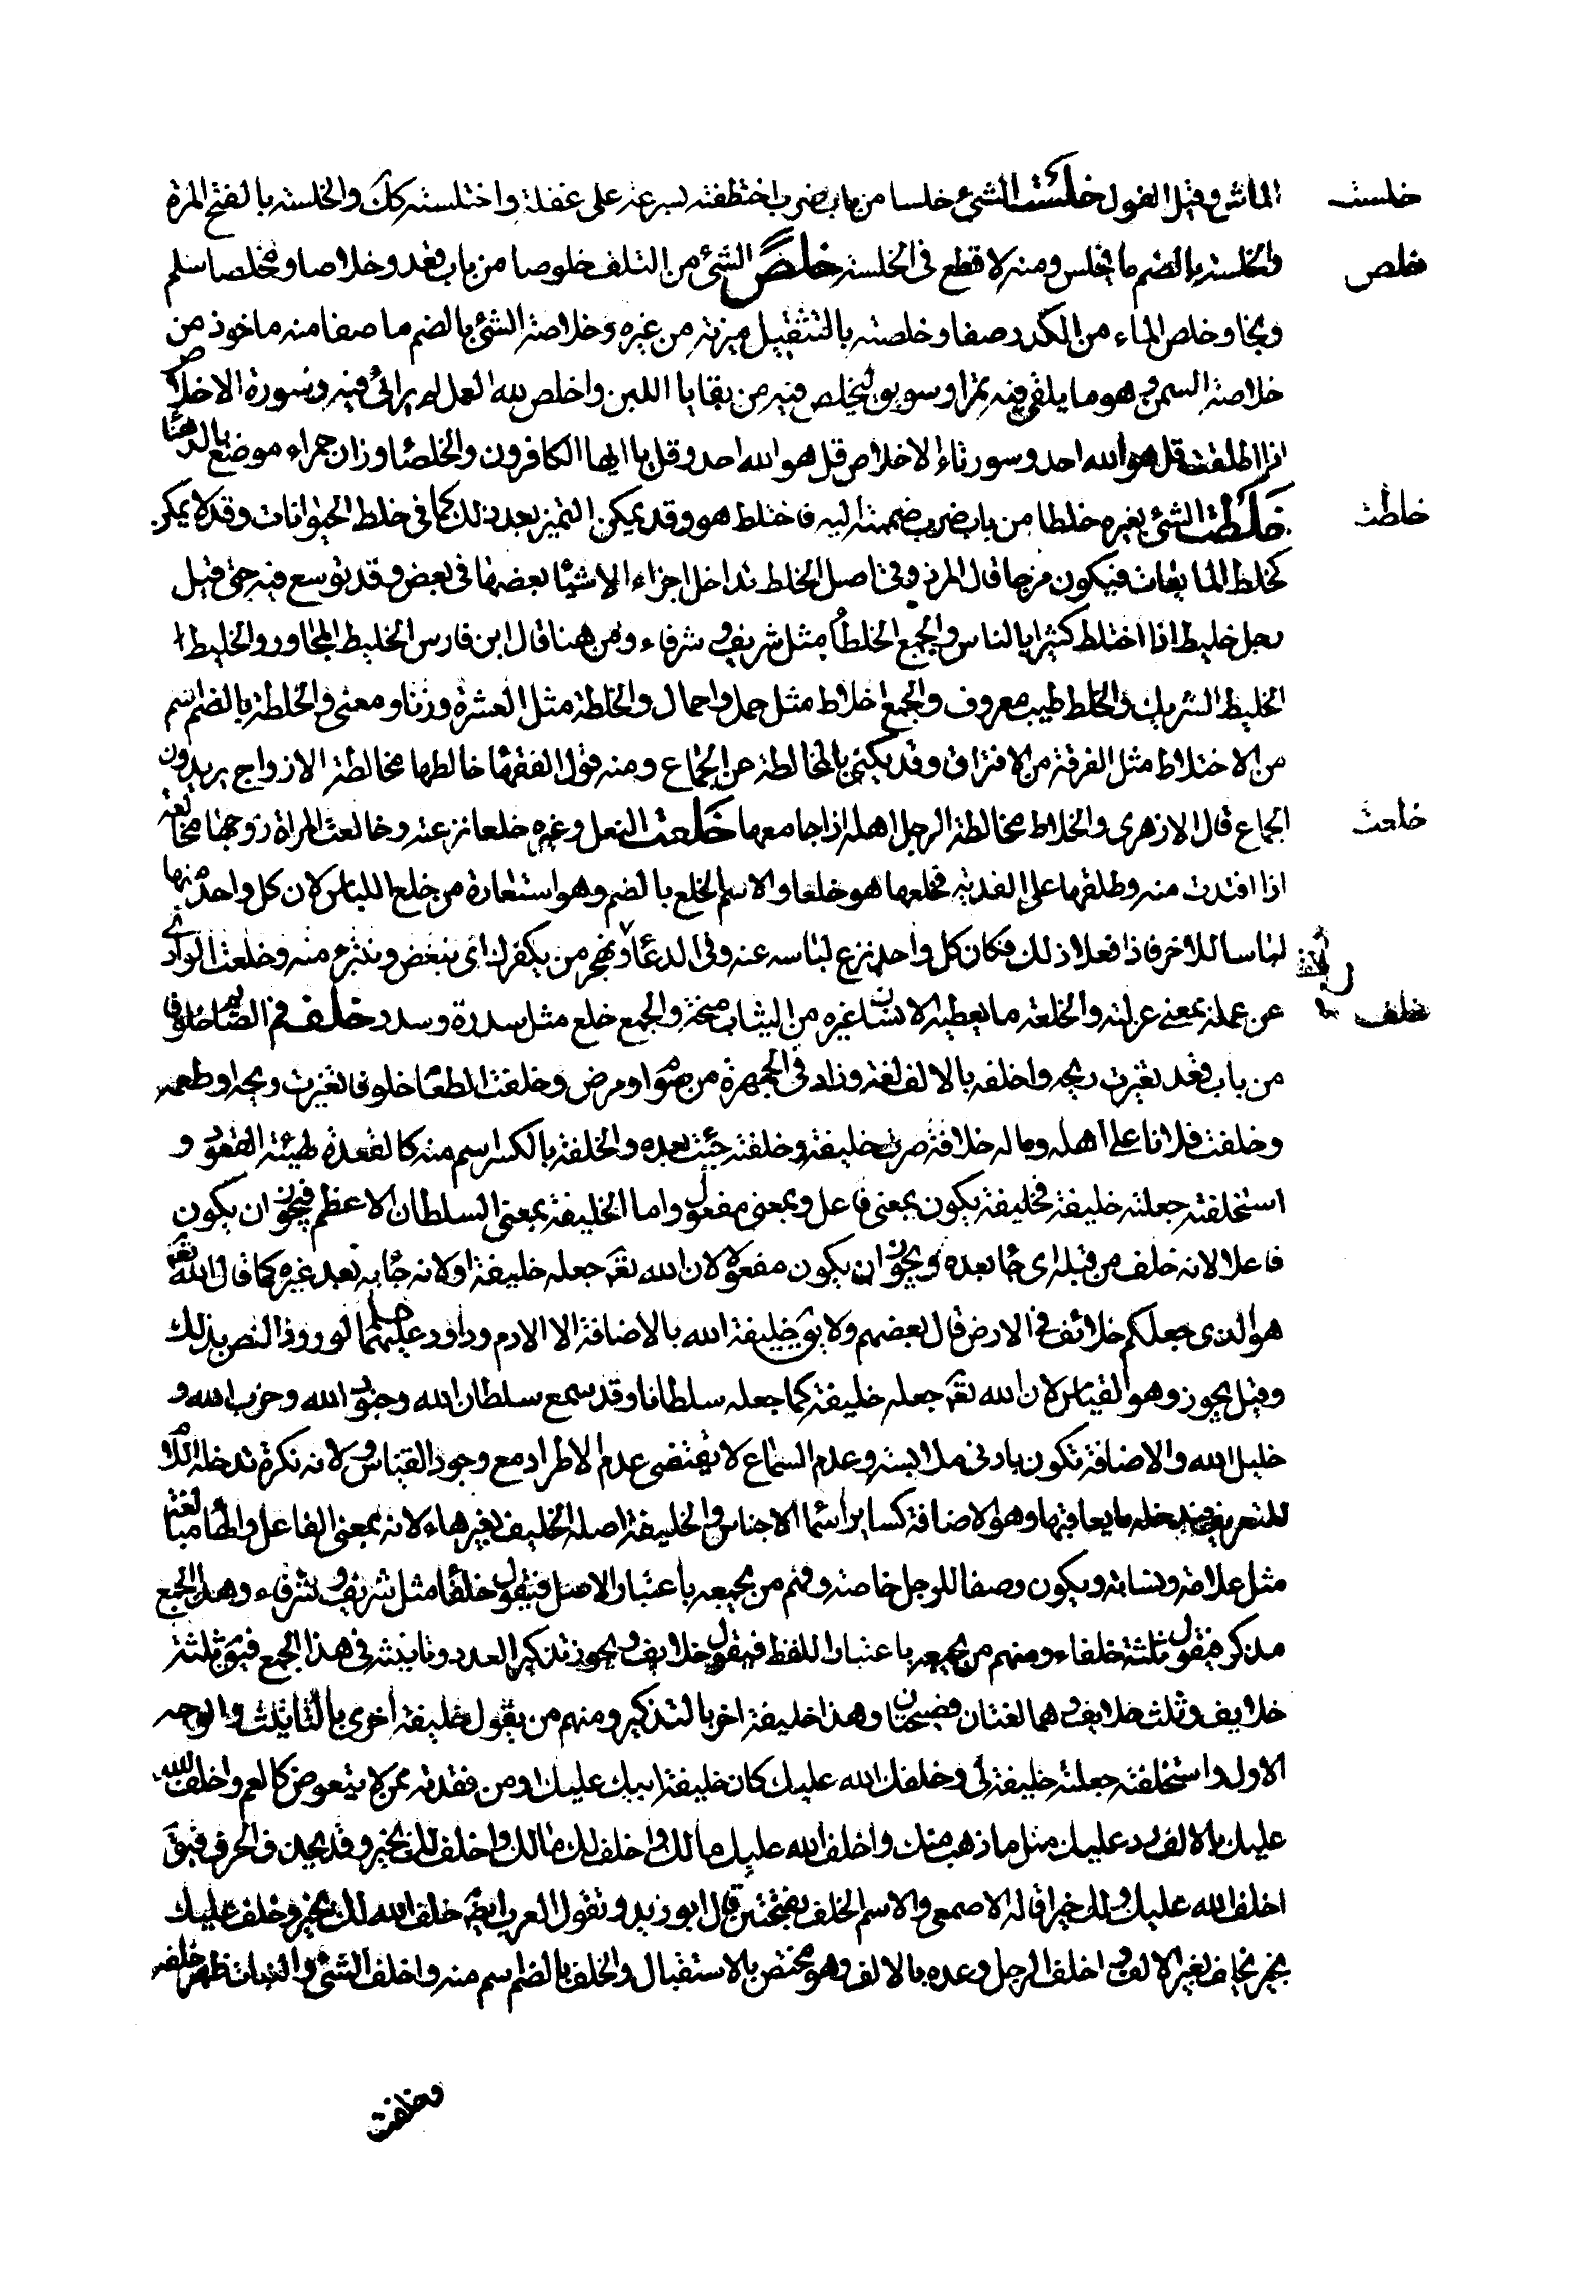 خلست
الماش وقيل الفول خلست الشئ خلسا من باب ضرب اختطفته بسرعة على غفلة واختلسته كك والخلسة بالفتح المرة
خلص
والخلسة بالضم ما يخلس ومنه لا قطع فى الخلسة خلص الشئ من التلف خلوصا من باب قعد وخلاصا ومخلصا سلم
ونجا وخلص الماء من الكدر صفا وخلصته بالتثقيل ميزته من غيره وخلاصة الشئ بالضم ما صفا منه ماخوذ من
خلاصة السمن وهو ما يلقى فيه تمر او سويق ليخلص فيه من بقايا اللبن واخلص لله العمل لم يرائ فيه وسورة الاخلاص
اذا اطلقت قل هو الله احد وسورتاء الاخلاص قل هو الله احد وقل يا ايها الكافرون والخلصا وزان حمراء موضع بالدهنا
خلطت
خلطت الشئ بغيره خلطا من باب ضرب ضممته اليه فاختلط هو وقد يمكن التميز بعد ذلك كما فى خلط الحيوانات وقد لا يمكن
كخلط المايعات فيكون مزجا قال المرزوقى اصل الخلط تداخل اجزاء الاشيا بعضها فى بعض وقد توسع فيه حتى قيل
رجل خليط اذا اختلط كثيرا بالناس والجمع الخلطا مثل شريف وشرفاء ومن هنا قال ابن فارس الخليط المجاور والخليط
الخليط الشريك والخلط طيب معروف والجمع اخلاط مثل حمل واحمال والخلطة مثل العشرة وزنا ومعنى والخلطة بالضم اسم
من الاختلاط مثل الفرقة من الافتراق وقد يكنى بالمخالطة عن الجماع ومنه قول الفقها خالطها مخالطة الازواج يريدون
خلعت
الجماع قال الازهرى والخلاط مخالطة الرجل اهله اذا جامعها خلعت النعل وغيره خلعا نزعته وخالعت المراة زوجها مخالعة
اذا افتدت منه وطلقها على الفدية فخلعها هو خلعا والاسم الخلع بالضم وهو استعارة من خلع اللباس لان كل واحد منهما
لباسا للاخر فاذا فعلا ذلك فكان كل واحد نزع لباسه عنه وفى الدعاء ونهجر من يكفرك اى نبغض ونتبرء منه وخلعت الوالى
خلف
عن عمله بمعنى عزلته والخلعة ما يعطيه الانسان غيره من الثياب منحة والجمع خلع مثل سدرة وسدر خلف فم الصائم خلوفا
من باب قعد تغيرت ريحه واخلف بالالف لغة وزاد فى الجمهرة من صوم او مرض وخلفت الطعام خلوفا تغيرت ريحه او طعمه
وخلفت فلانا على اهله وماله خلافة صرت خليفة وخلفته جئت بعده والخلفة بالكسر اسم منه كالقعدة لهيئة القعود و
استخلفته جعلته خليفة فخليفة يكون بمعنى فاعل وبمعنى مفعول واما الخليفة بمعنى السلطان الاعظم فيجوز ان يكون
فاعلا لانه خلف من قبله اى جا بعده ويجوز ان يكون مفعولا لان الله تعم جعله خليفة او لانه جا به بعد غيره كما قال الله تعم
هو الذى جعلكم خلائف فى الارض قال بعضهم ولا يق خليفة الله بالاضافة الا لادم وداود عليهما لورود النص بذلك
وقيل يجوز وهو القياس لان الله تعم جعله خليفة كما جعله سلطانا وقد سمع سلطان الله وجنود الله وحزب الله و
خليل الله والاضافة تكون بادنى ملابسة وعدم السماع لا يقتضى عدم الاطراد مع وجود القياس ولانه نكرة تدخله اللام
للتعريف فيدخله ما يعاقبها وهو الاضافة كساير اسما الاجناس والخليفة اصله الخليف بغير هاء لانه بمعنى الفاعل والها مبالغة
مثل علامة ونسابة ويكون وصفا للرجل خاصة ومنهم من يجمعه باعتبار الاصل فيقول خلفا مثل شريف وشرفاء وهذا الجمع
مذكر فيقول ثلثة خلفاء ومنهم من يجمعه باعتبار اللفظ فيقول خلايف ويجوز تذكير العدد وتانيثه فى هذا الجمع فيق ثلثة
خلايف وثلث خلايف وهما لغتان فصيحتان وهذا خليفة اخر بالتذكير ومنهم من يقول خليفة اخرى بالتانيث والوجه
الاول واستخلفته جعلته خليفة لى وخلف الله عليك كان خليفة ابيك عليك او من فقدته ممن لا يتعوض كالعم واخلف الله
عليك بالالف رد عليك مثل ما ذهب منك واخلف الله عليك مالك واخلف لك مالك واخلف لك بخير وقد يحذف الحرف فيق
اخلف الله عليك ولك خيرا قاله الاصمعى والاسم الخلف بفتحتين قال ابو زيد وتقول العرب ايضا خلف الله لك بخير وخلف عليك
بخير يخلف بغير الالف واخلف الرجل وعده بالالف وهو مختص بالاستقبال والخلف بالضم اسم منه واخلف الشئ والنبات ظهر خلفه
وخلفت